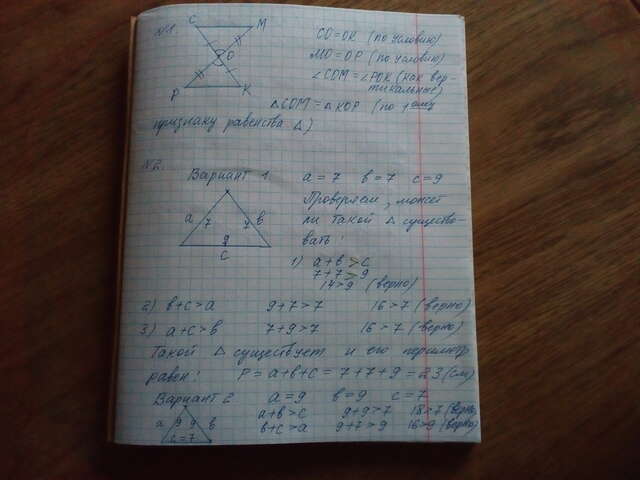 №1.
C M
O
P K
CO = OK (по условию)
MO = OP (по условию)
∠COM = ∠POK (как вер-
тикальные)
△COM = △KOP (по 1 ому
признаку равенства △)
№2.
Вариант 1. a = 7 b = 7 c = 9
Проверяем, может
ли такой △ существо-
вать:
a 7 7 b
9
c
1) a + b > c
7 + 7 > 9
14 > 9 (верно)
2) b + c > a 9 + 7 > 7 16 > 7 (верно)
3) a + c > b 7 + 9 > 7 16 > 7 (верно)
Такой △ существует и его периметр
равен: P = a + b + c = 7 + 7 + 9 = 23 (см)
Вариант 2 a = 9 b = 9 c = 7
a + b > c 9 + 9 > 7 18 > 7 (верно)
a 9 9 b b + c > a 9 + 7 > 9 16 > 9 (верно)
c = 7